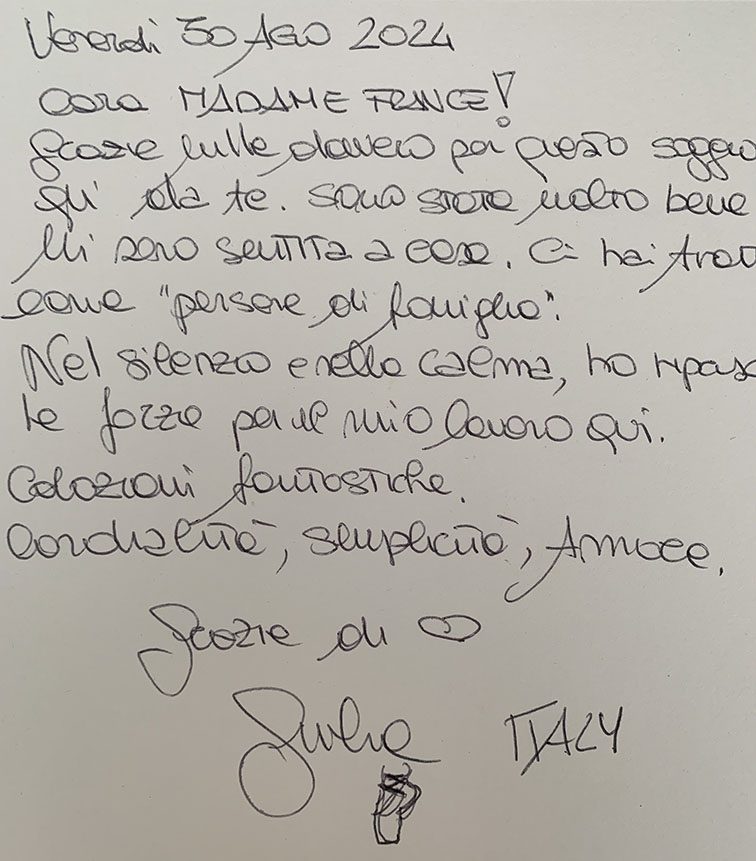 Venerdì 30 AGO 2024
Cara MADAME FRANCE!
Grazie mille davvero per questo soggio
qui da te. sono stata molto bene
Mi sono sentita a casa. Ci hai trat
come "persone di famiglia".
Nel silenzio e nella calma, ho
le forze per il mio lavoro qui.
Colazioni fantastiche.
Cordialità, semplicità,
Grazie di ♡
Giulia ITALY